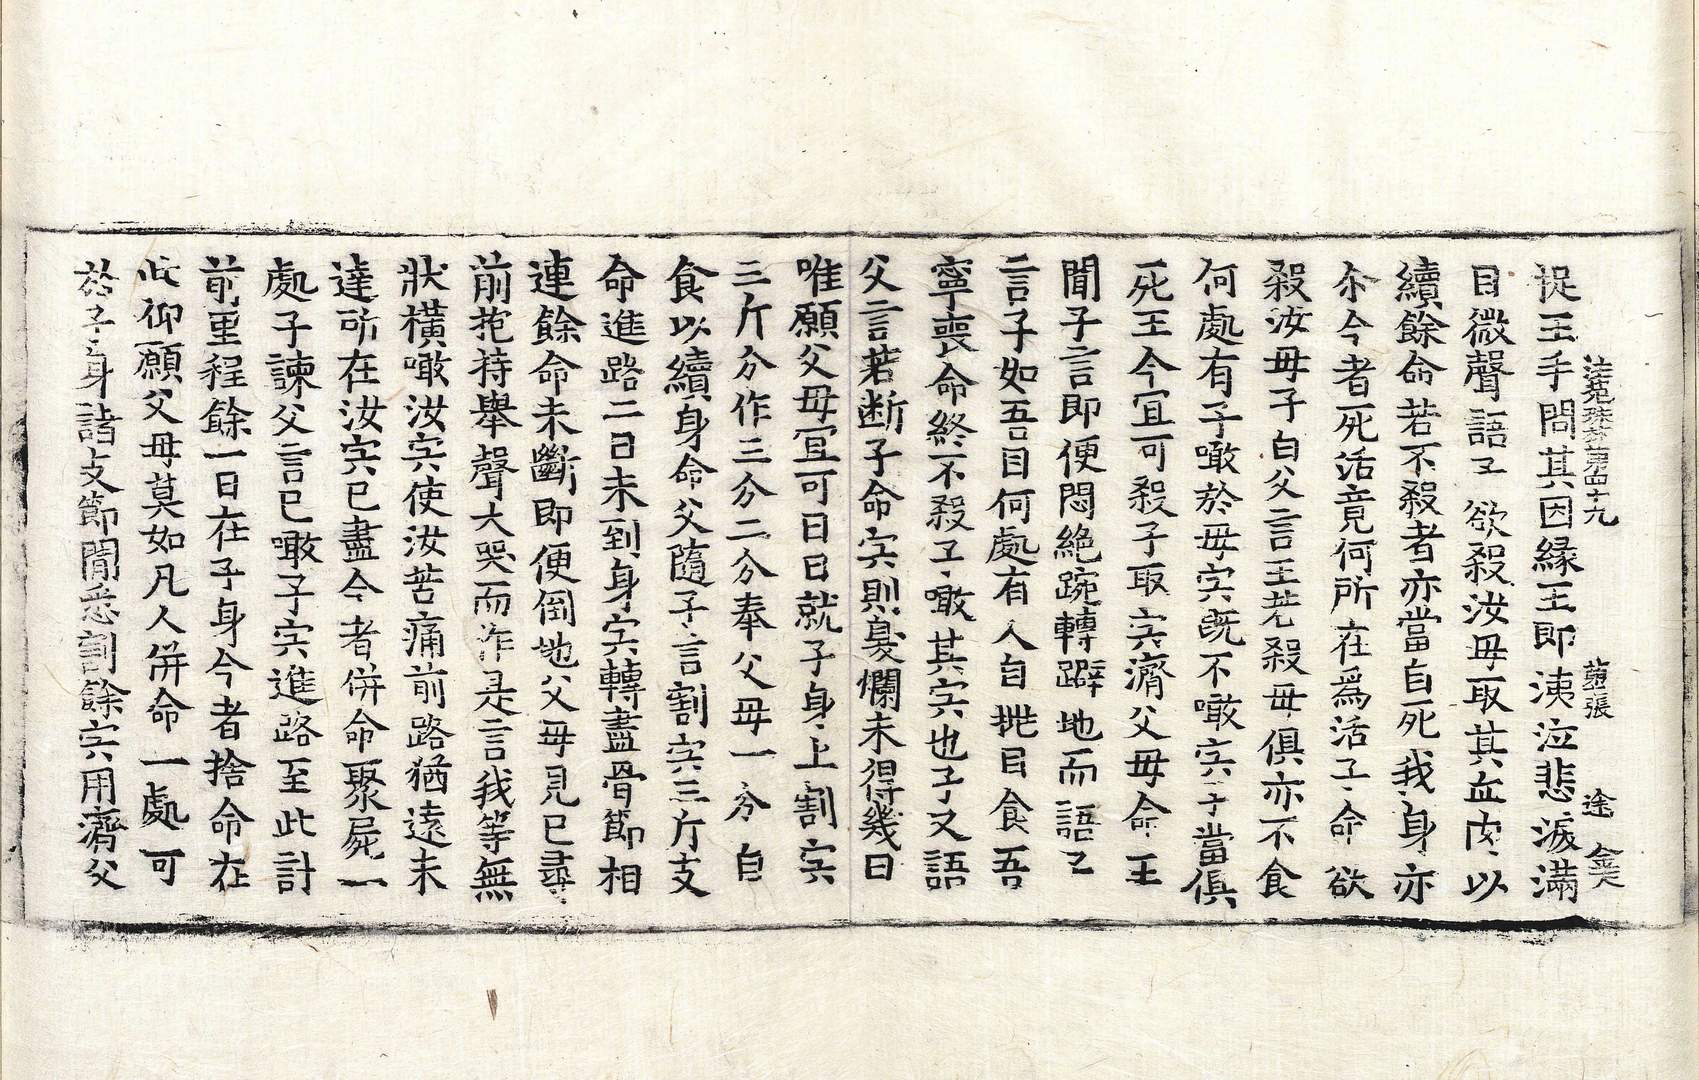 法苑珠林第四十九　苐　張　途　金夫
捉王手問其因緣王即洟泣悲淚滿
目微聲語子欲殺汝母取其血肉以
續餘命若不殺者亦當自死我身亦
尒今者死活竟何所在爲活子命欲
殺汝母子白父言王若殺母俱亦不食
何處有子噉於母宍旣不噉宍子當俱
死王今冝可殺子取宍濟父母命王
聞子言即便悶絶踠轉躃地而語子
言子如吾目何處有人自挑目食吾
寧喪命終不殺子噉其宍也子又語
父言若断子命宍則臭爛未得幾日
唯願父母冝可日日就子身上割宍
三斤分作三分二分奉父母一分自
食以續身命父隨子言割宍三斤支
命進路二日未到身宍轉盡骨節相
連餘命未斷即便倒地父母見已尋
前抱持舉聲大哭而作是言我等無
狀橫噉汝宍使汝苦痛前路猶遠未
達所在汝宍已盡今者併命聚屍一
處子諫父言已噉子宍進路至此計
前里程餘一日在子身今者捨命在
此仰願父母莫如凡人併命一處可
於子身諸支節閒悉割餘宍用濟父